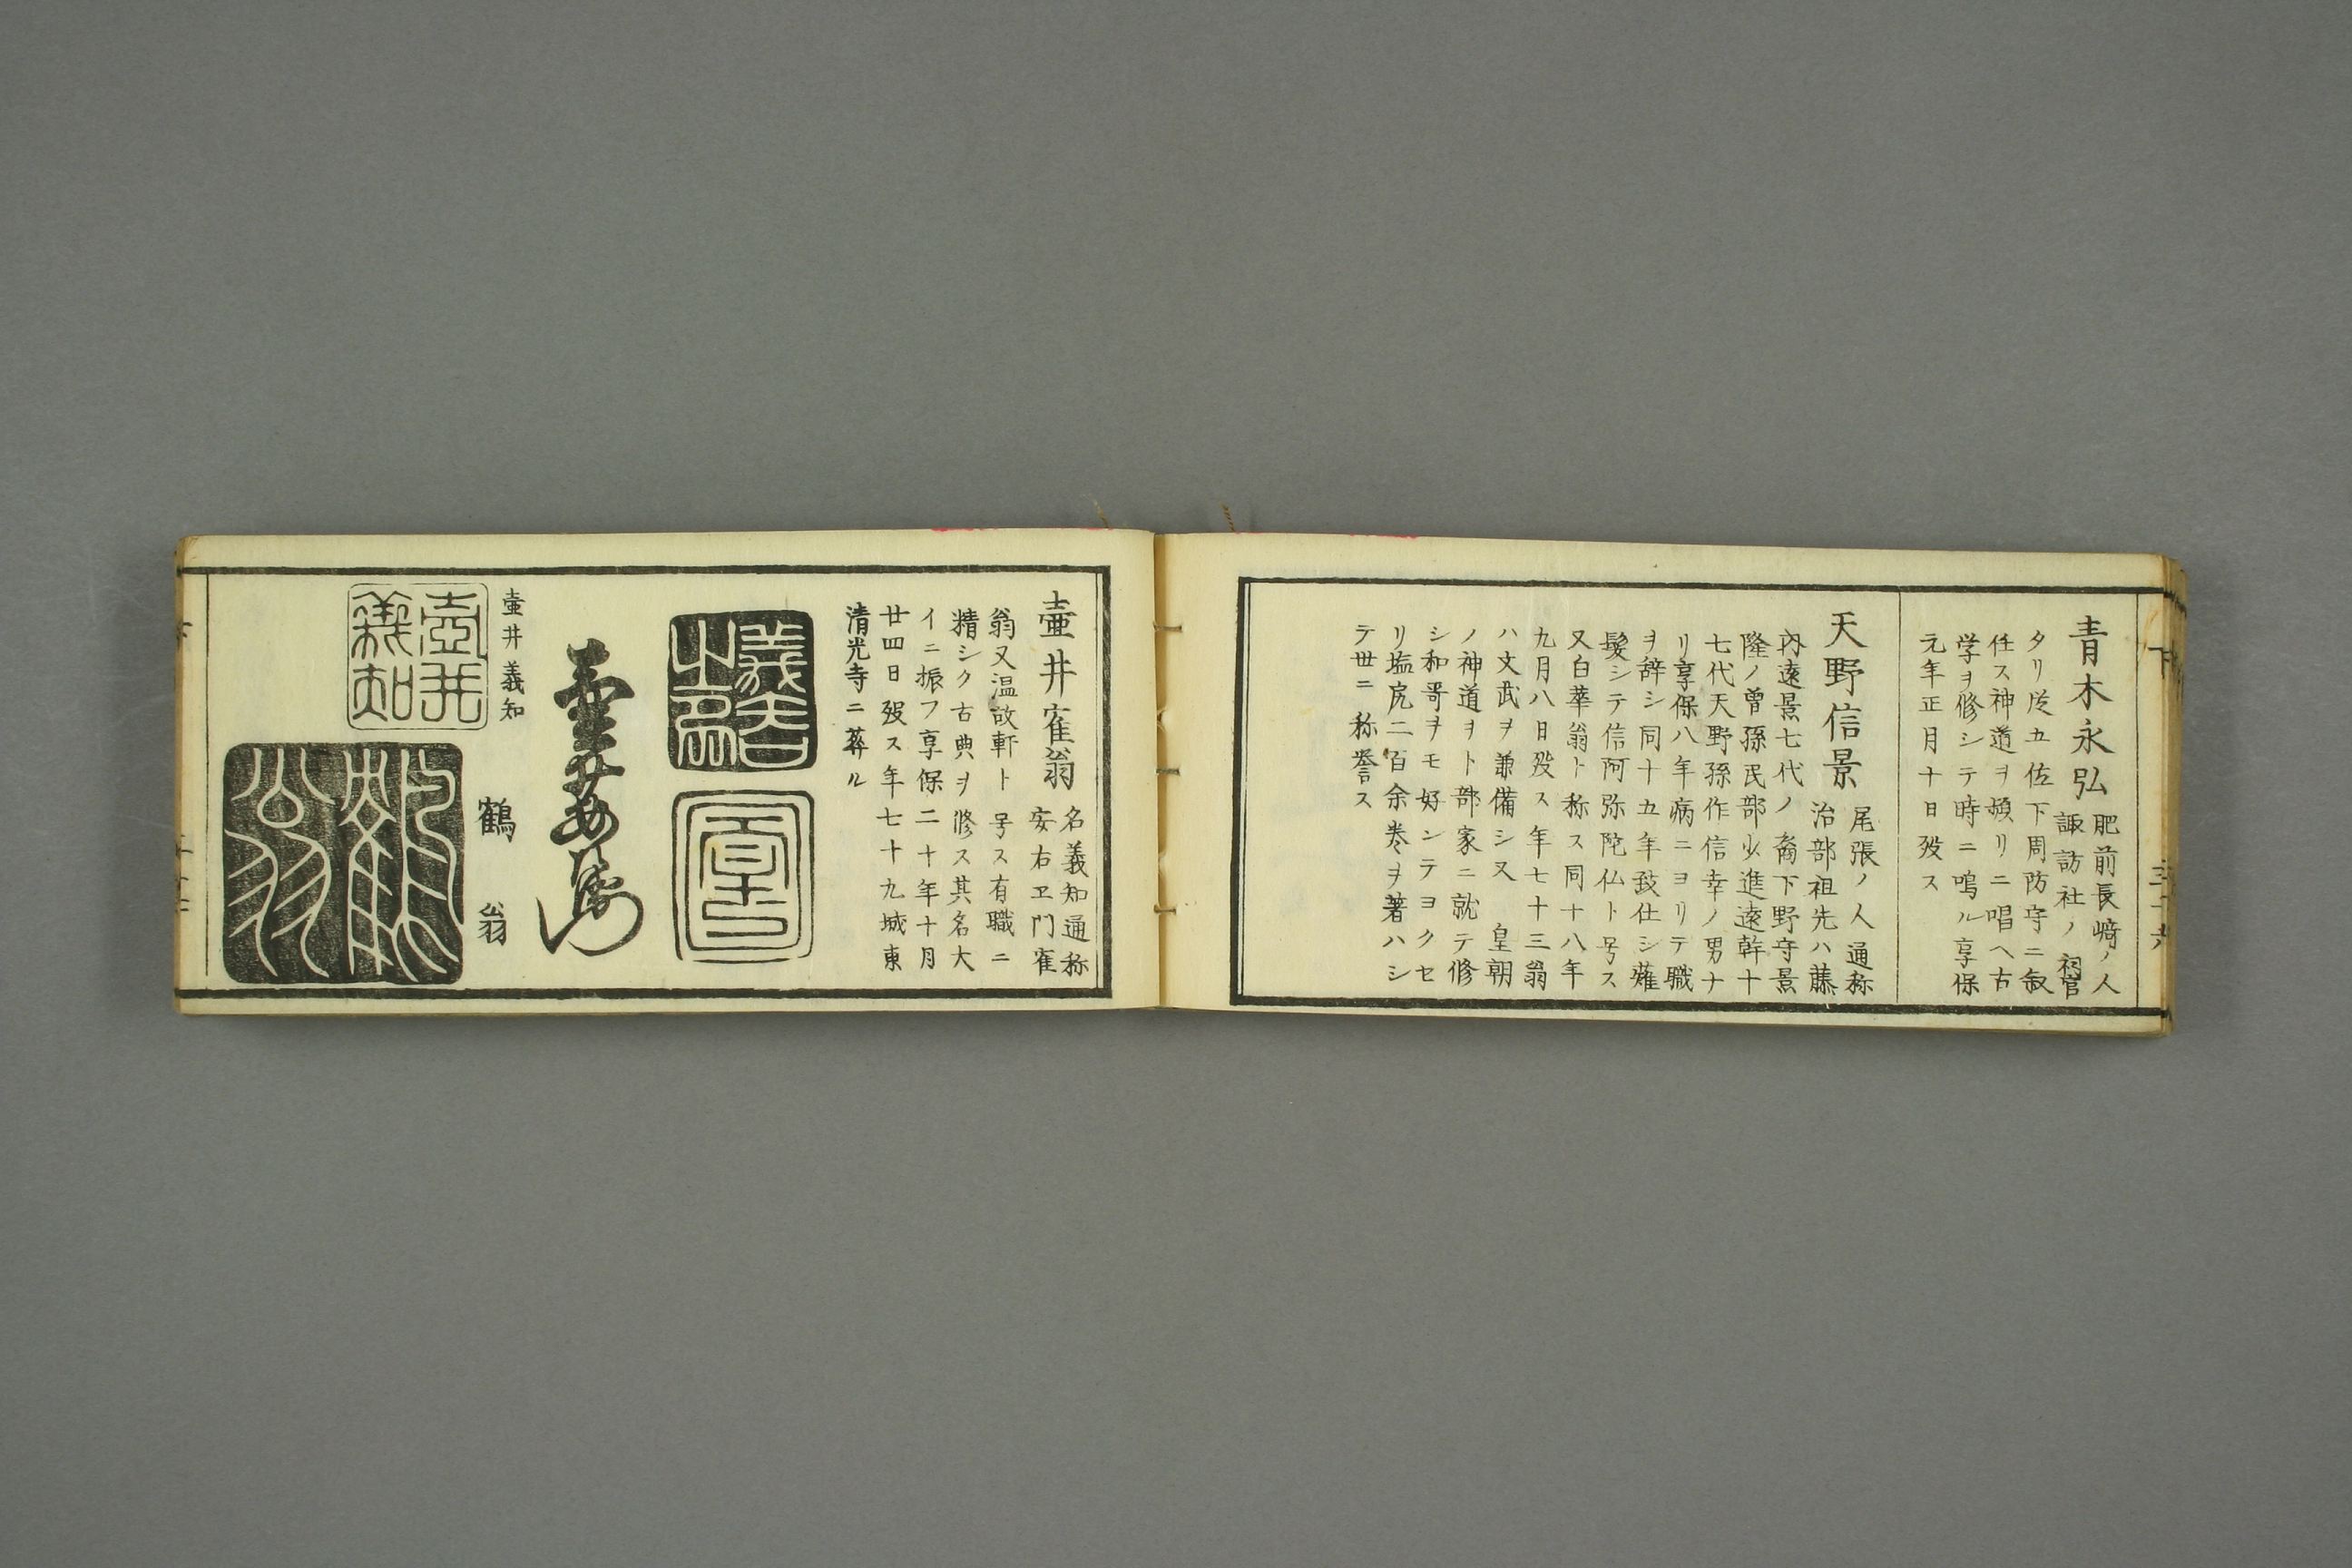 青木永弘
肥前長﨑ノ人
諏訪社ノ祠官
タリ从五位下周防守ニ叙
任ス神道ヲ頻リニ唱ヘ古
学ヲ修シテ時ニ鳴ル享保
元年正月十日歿ス
天野信景
尾張ノ人通称
治部祖先ハ藤
内遠景七代ノ裔下野守景
隆ノ曽孫民部少進遠幹十
七代天野孫作信幸ノ男ナ
リ享保八年病ニヨリテ職
ヲ辞シ同十五年致仕シ薙
髪シテ信阿弥陀仏ト号ス
又白華翁ト称ス同十八年
九月八日歿ス年七十三翁
ハ文武ヲ兼備シ又 皇朝
ノ神道ヲト部家ニ就テ修
シ和哥ヲモ好ンテヨクセ
リ塩尻二百余巻ヲ著ハシ
テ世ニ称誉ス
壷井寉翁
名義知通称
安右ヱ門寉
翁又温故軒ト号ス有職ニ
精シク古典ヲ修ス其名大
イニ振フ享保二十年十月
廿四日歿ス年七十九城東
清光寺ニ葬ル
壷井義知
壷井義知
鶴翁
鶴翁